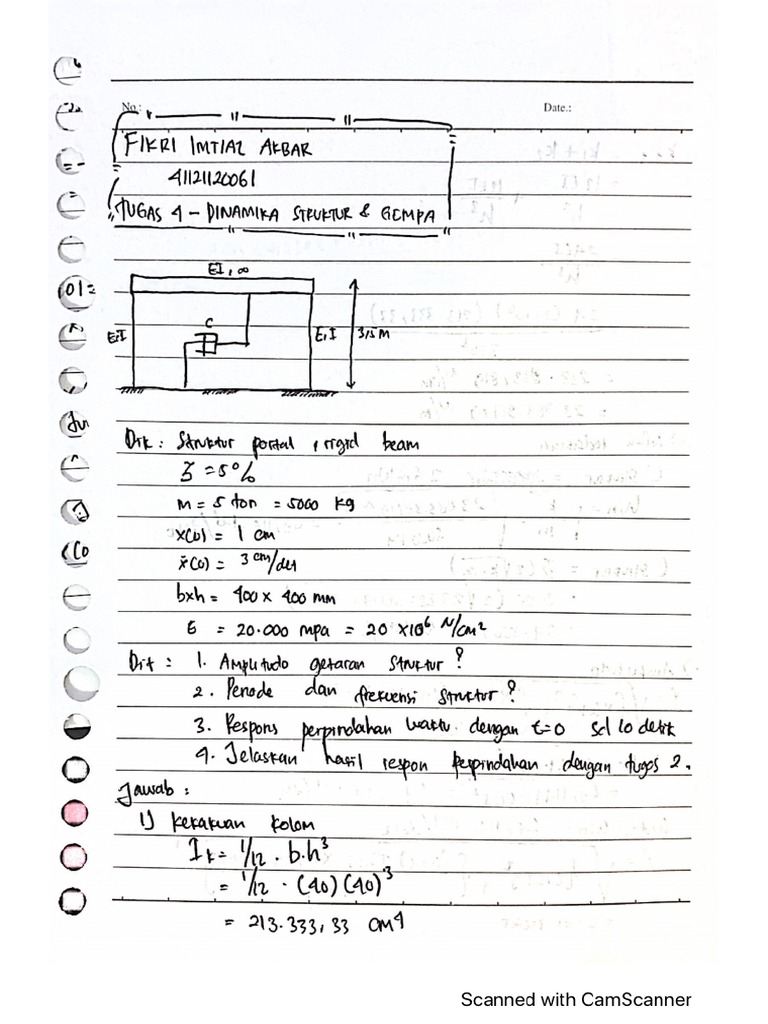 No.:
Date.:
FIKRI IMTIAZ AKBAR
41121120061
TUGAS 4 - DINAMIKA STRUKTUR & GEMPA
EI, ∞
C
E,I
E,I
3,5 M
Dik : Struktur portal, rigid beam
ξ = 5%
m = 5 ton = 5000 kg
x(0) = 1 cm
ẋ(0) = 3 cm/det
bxh = 400 x 400 mm
E = 20.000 mpa = 20 x10⁶ N/cm²
Dit : 1. Amplitudo getaran struktur ?
2. Periode dan frekuensi struktur ?
3. Respons perpindahan waktu dengan t=0 sd 10 detik
4. Jelaskan hasil respon perpindahan dengan tugas 2.
Jawab :
1) kekakuan kolom
Ik = 1/12 . b.h³
= 1/12 . (40) (40)³
= 213.333,33 cm4
Scanned with CamScanner